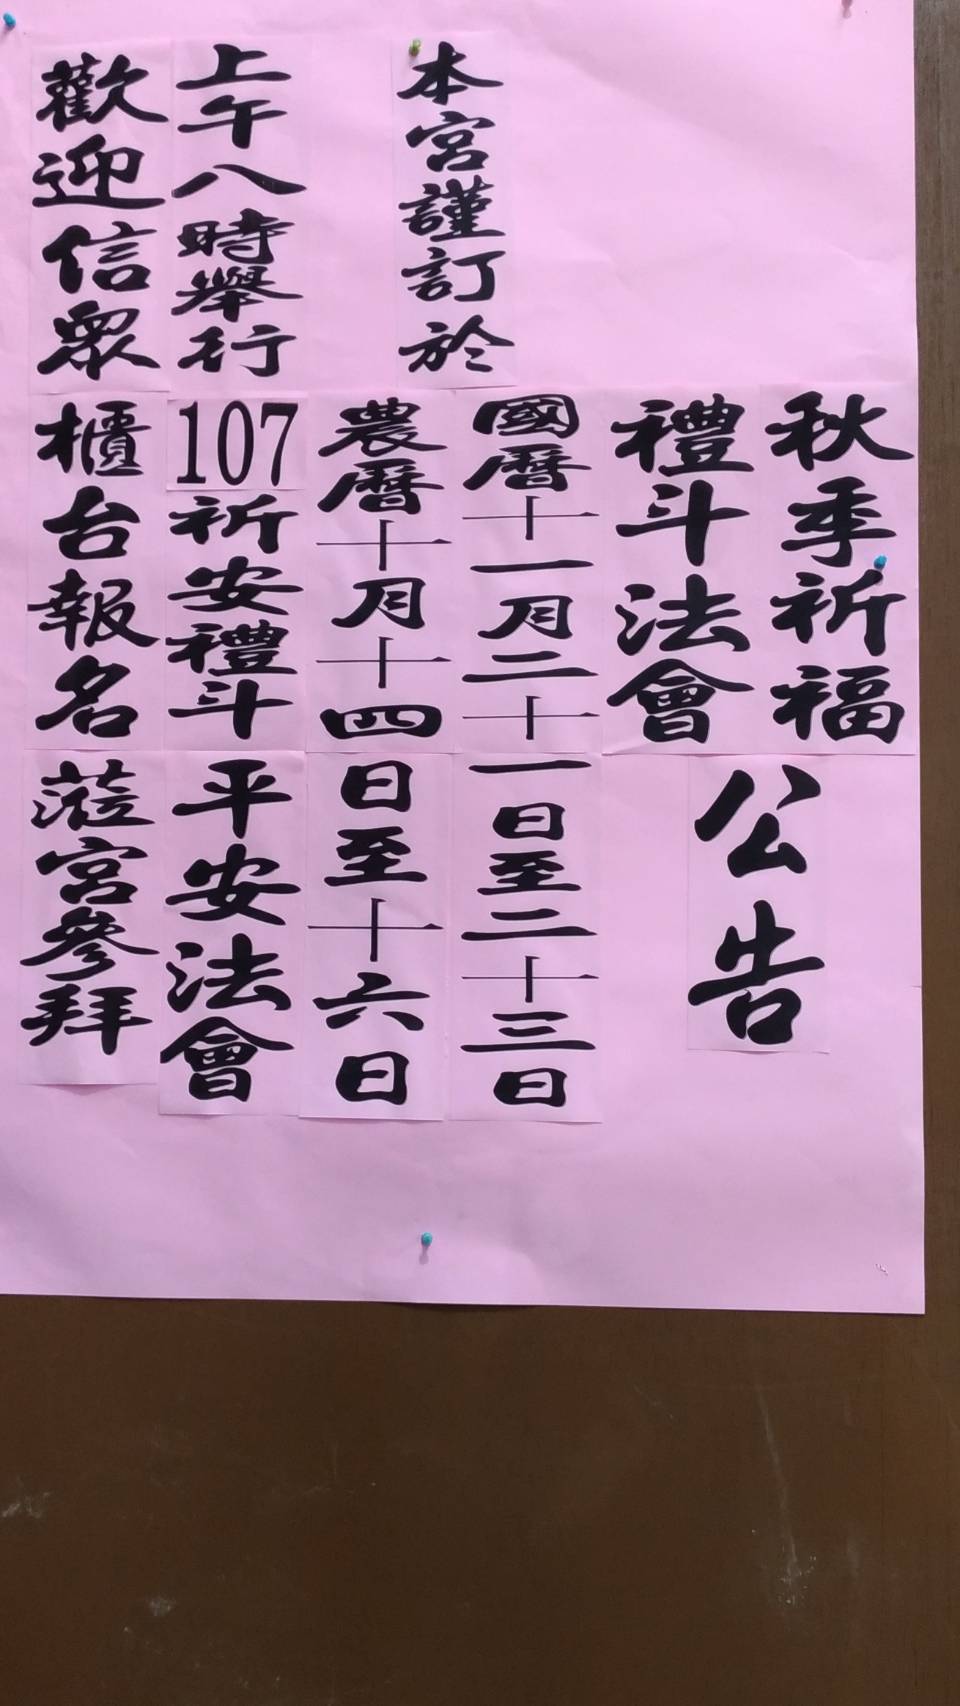 秋季祈福
禮斗法會
公告
本宮謹訂於
國曆十一月二十一日至二十三日
農曆十月十四日至十六日
上午八時舉行107祈安禮斗平安法會
歡迎信眾櫃台報名蒞宮參拜